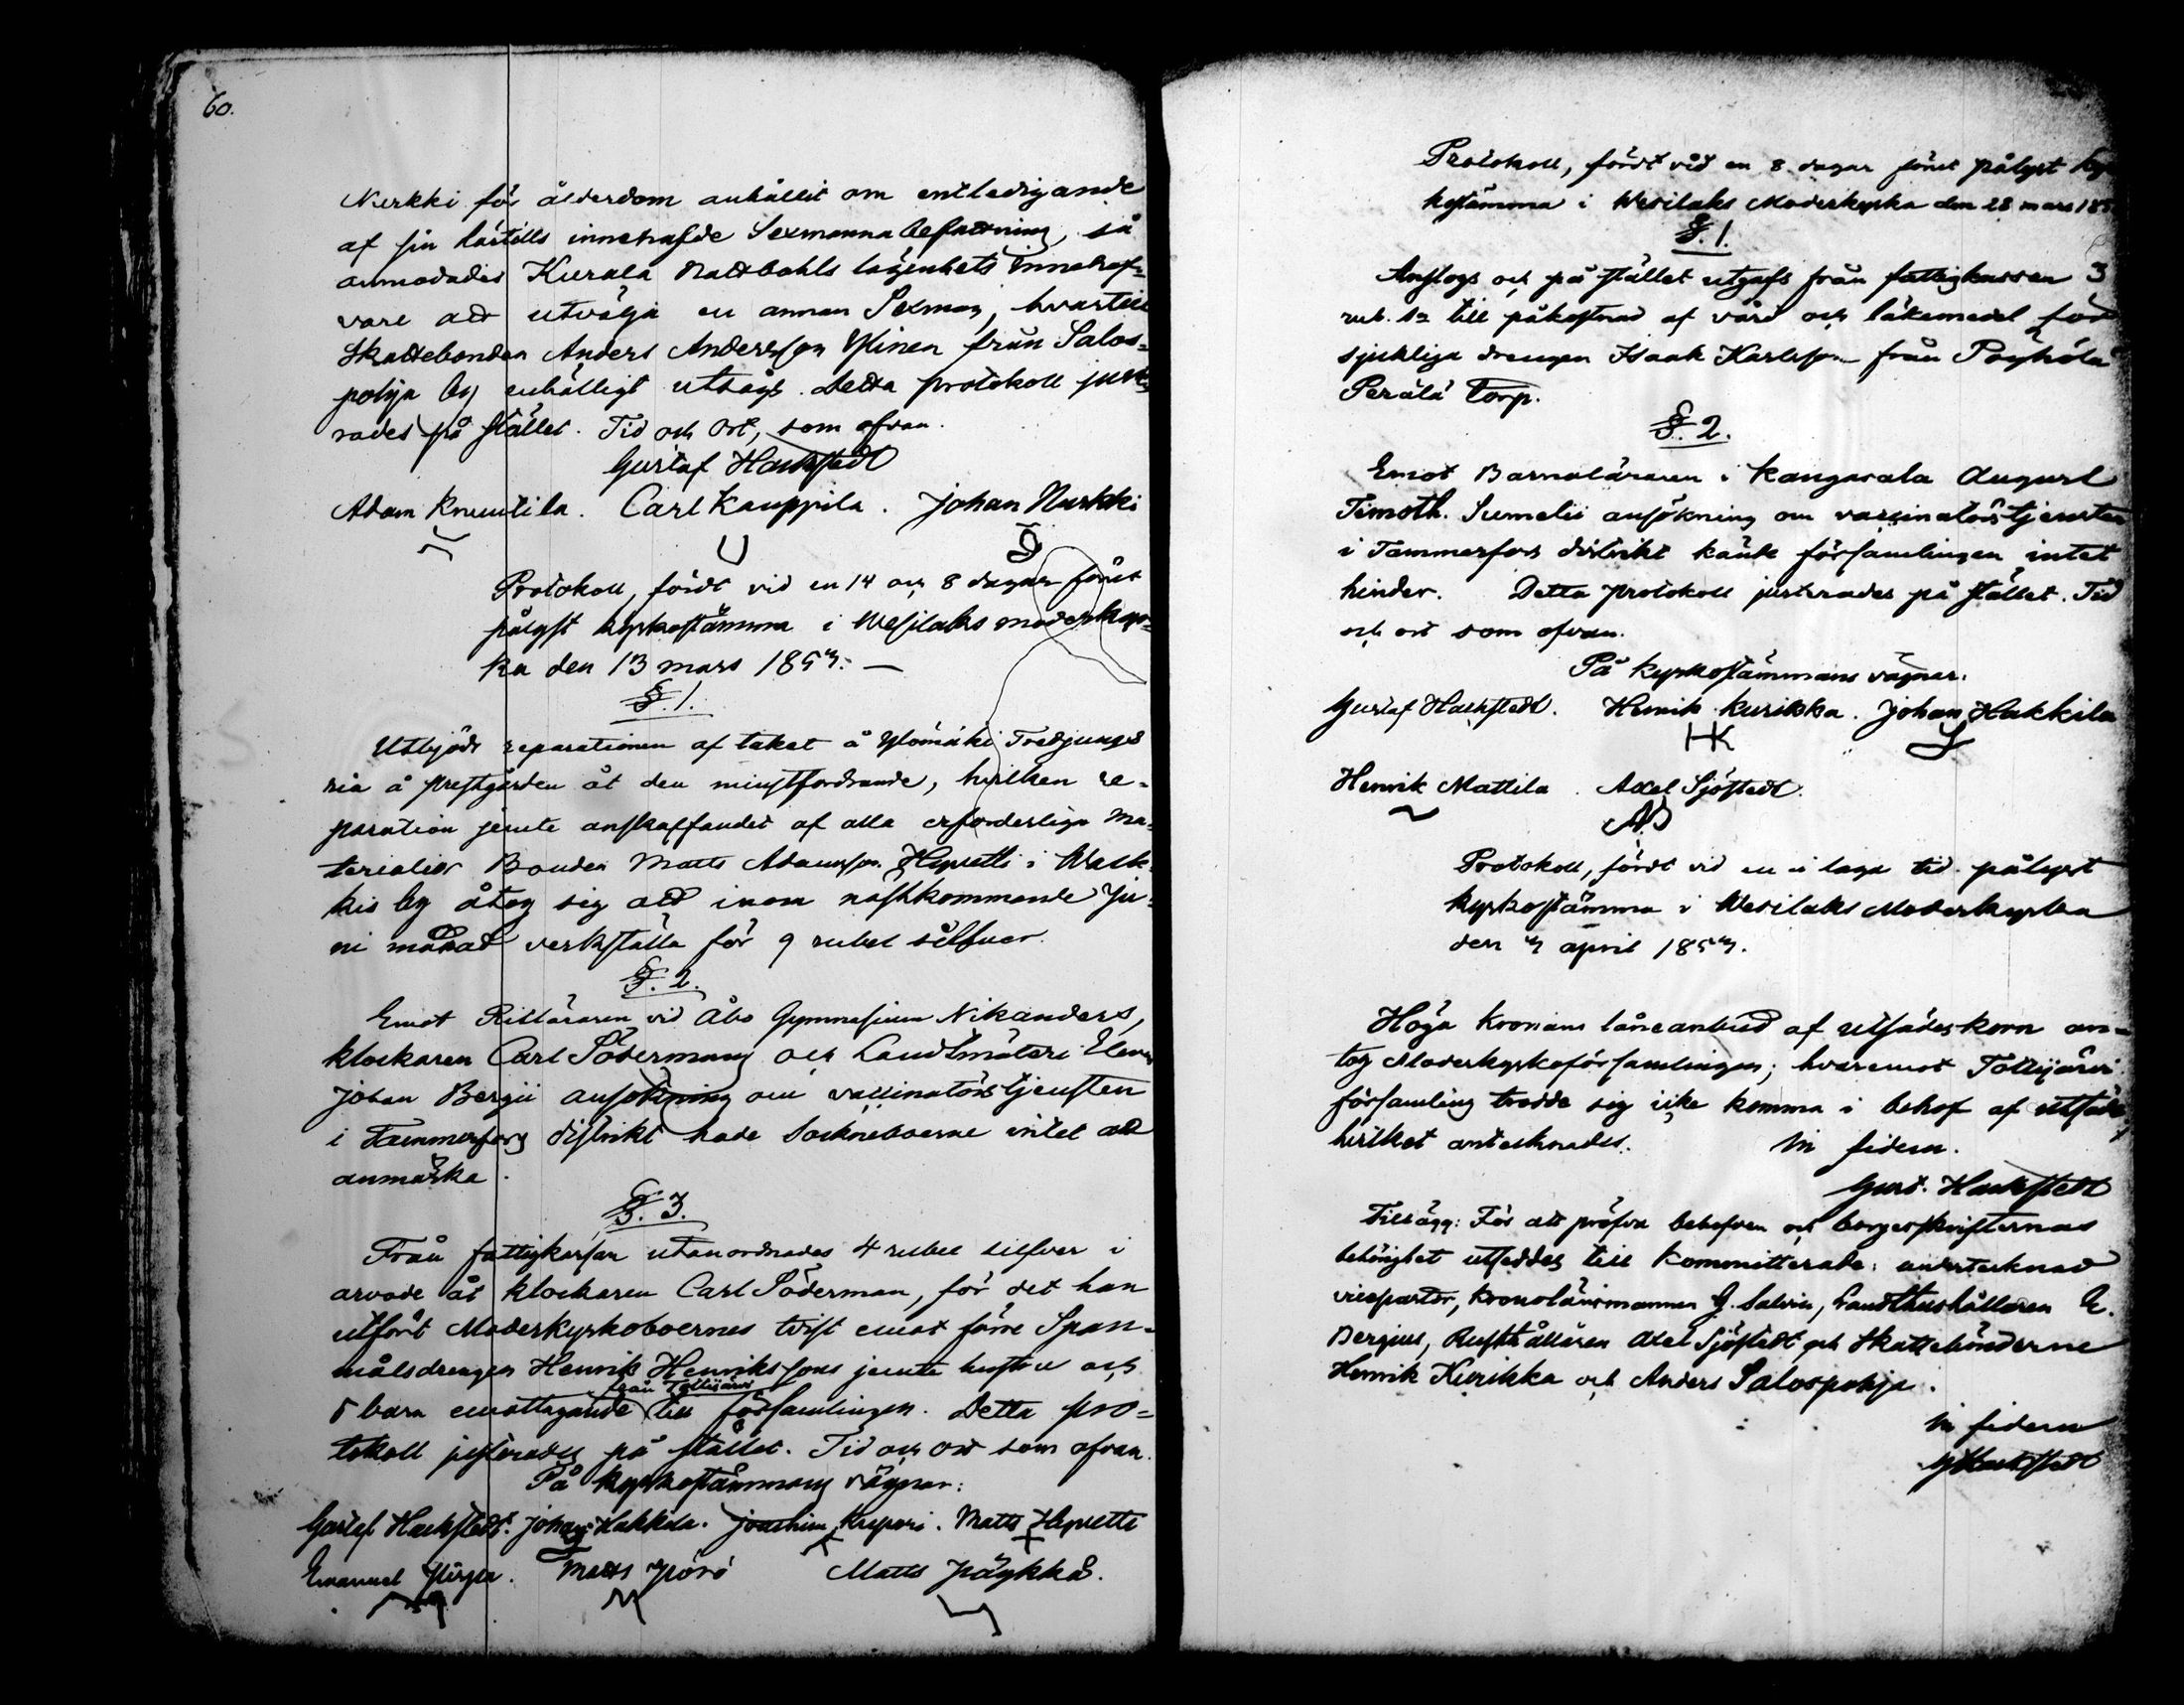 60.
Nurkki för ålderdom anhållit om entledigande
af sin härtills innehafde Sexmanna befattning, så
anmodades Kurala Rattbohls lägenhets innehaf-
vare att utvälja en annan Sexman, hvartill
Skattebonden Anders Andersson Ylinen från Salos-
pohja by enhälligt utsågs. Detta protokoll juste-
rades på stället. Tid och Ort, som ofvan.
Gustaf Hackstedt
Adam Knuutila. Carl Kauppila. Johan Nurkki
Protokoll, fördt vid en 14 och 8 dagar förut
pålyst kyrkostämma i Wesilaks moderkyr-
ka den 13 mars 1857. —
§. 1.
Utbjöds reparationen af taket å Ylömäki Tredjungs
ria å prestgården åt den minstfordrande, hvilken re-
paration jemte anskaffandet af alla erforderliga Ma-
terialier Bonden Matts Adamsson Hepretti i Wack-
kis by åtog sig att inom nästkommande Ju-
ni månad verkställa för 9 rubel silfver.
§. 2.
Emot Ritläraren vid Åbo Gymnasium Nikanders,
klockaren Carl Södermans och Landtmäteri Eleven
Johan Bergii ansökning om vaccinatörstjensten
i Tammerfors distrikt hade Sockneboerne intet att
anmärka.
§. 3.
Från fattigkassan utanordnades 4 rubel silfver i
arvode åt klockaren Carl Söderman, för det han
utfört Moderkyrkoboernes tvist emot förre Span-
målsdrengen Henrik Henrikssons jemte hustru och
från Tottijärvi
5 barn emottagande till församlingen. Detta pro-
tokoll justerades på stället. Tid och Ort som ofvan.
På kyrkostämmans vägnar:
Gustaf Hackstedt. Johan Hakkila. Joachim Krepori. Matts Hepretti
Emanuel. Matts Yörö Matts Päykkä.
Protokoll, fördt vid en 8 dagar förut pålyst kyr
kostämma i Wesilaks Moderkyrka den 28 mars 185
§. 1.
Anslogs och på stället utgafs från fattigkassan 3
rub. Sr till påkostnad af vård och läkemedel för
sjuklige drengen Isaak Karlsson från Pöyhölä
Perälä torp.
§. 2.
Emot Barnaläraren i Kangasala August
Timoth. Sumelii ansökning om vaccinatörstjensten
i Tammerfors distrikt hade församlingen intet
hinder. Detta protokoll justerades på stället. Tid
och ort som ofvan.
På kyrkostämmans vägnar.
Gustaf Hackstedt. Henrik Kurikka. Johan Hakkila
HK
Henrik Mattila. Axel Sjöstedt.
Protokoll, fördt vid en i laga tid pålyst
kyrkostämma i Wesilaks Moderkyrka
den 7 april 1857.
Höga Kronans låneanbud af utsädeskorn an-
tog Moderkyrkoförsamlingen; hvaremot Tottijärvi
församling trodde sig icke komma i behof af utsäde,
hvilket antecknades. In fidem.
Gust. Hackstedt
Tillägg: För att pröfva behofven och borgesskrifternas
behörighet utseddes till Kommitterade: undertecknad
vicepastor, Kronolänsmannen G. Salvin, Landthushållaren E.
Bergius, Rusthållaren Axel Sjöstedt och Skattebönderne
Henrik Kurikka och Anders Salospohja.
In fidem
GHackstedt